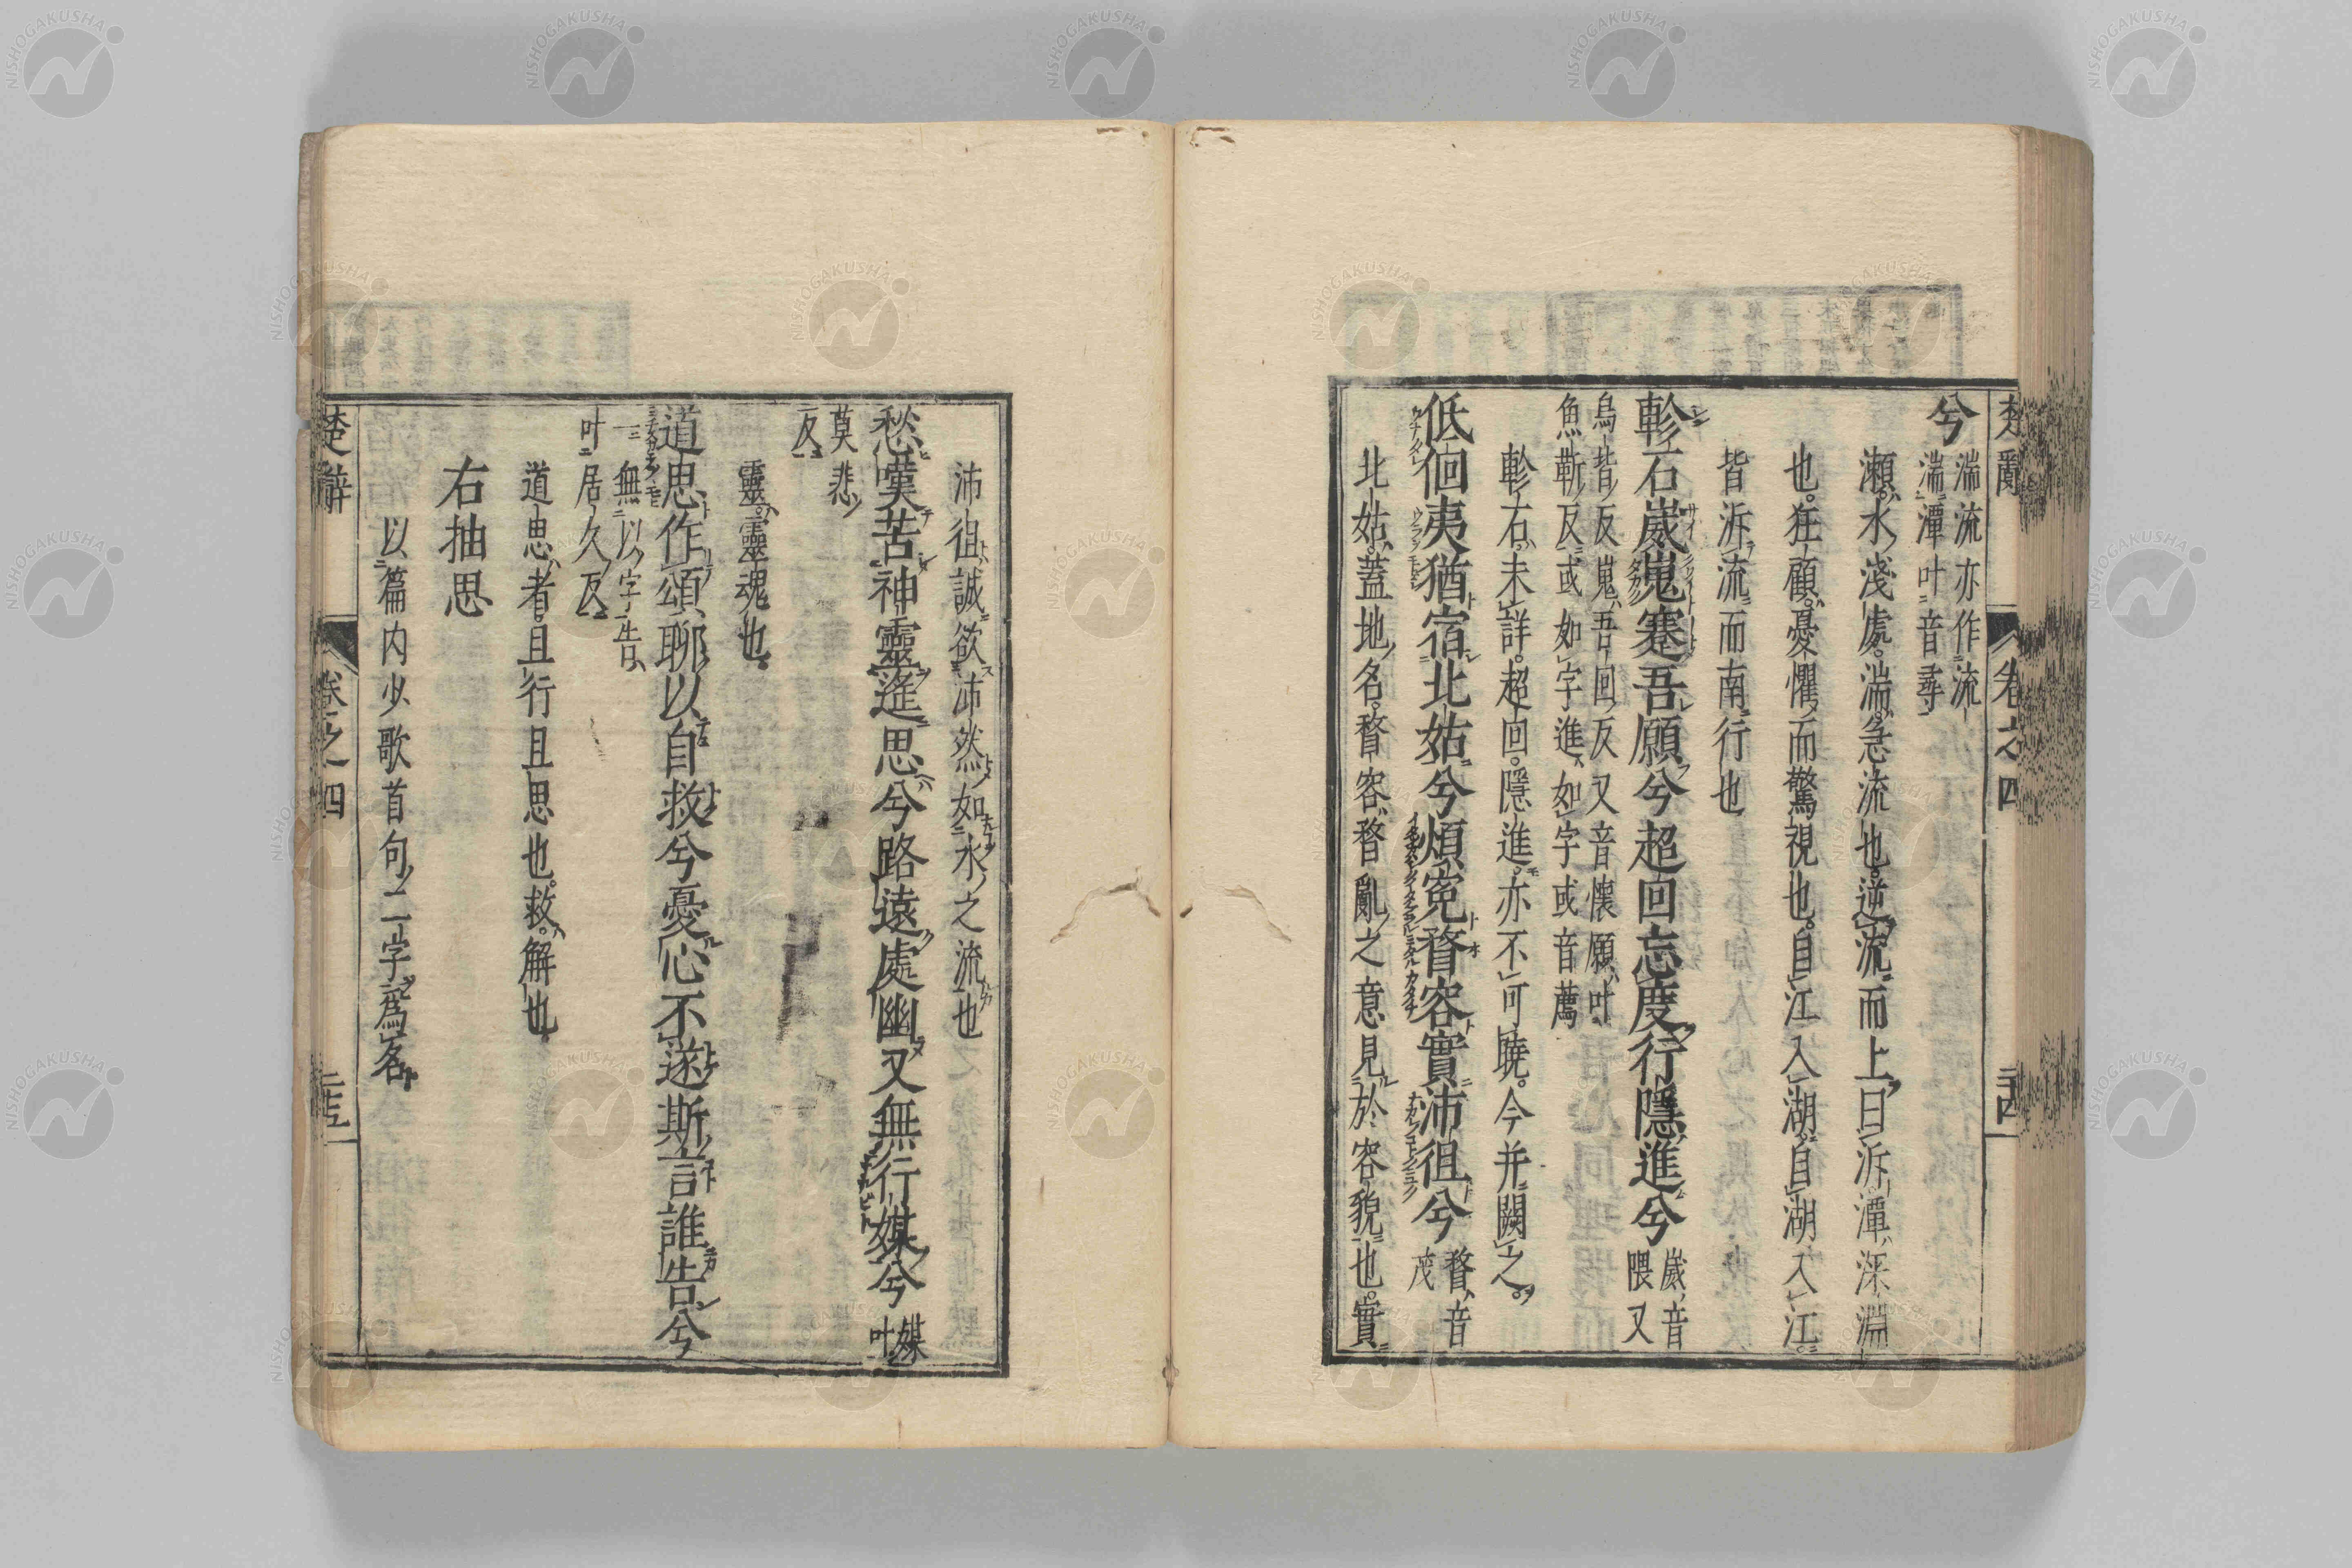 兮
湍流亦作流
湍潭叶音尋
瀨水淺處湍急流也逆流而上曰泝潭深淵
也狂顧憂懼而驚視也自江入湖自湖入江
皆泝流而南行也
軫石崴嵬蹇吾願兮超回忘度行隱進兮
崴音
隈又
烏皆反嵬吾回反又音懷願叶
魚靳反或如字進如字或音薦
軫石未詳超回隱進亦不可曉今并闕之
低佪夷猶宿北姑兮煩冤瞀容實沛徂兮
瞀音
茂
北姑蓋地名瞀容瞀亂之意見於容貌也實
沛徂誠欲沛然如水之流也
愁嘆苦神靈遙思兮路遠處幽又無行媒兮
媒
叶
莫悲
反
靈靈魂也
道思作頌聊以自救兮憂心不遂斯言誰告兮
一無以字告
叶居久反
道思者且行且思也救解也
右抽思
以篇内少歌首句二字爲名
楚辭
卷之四